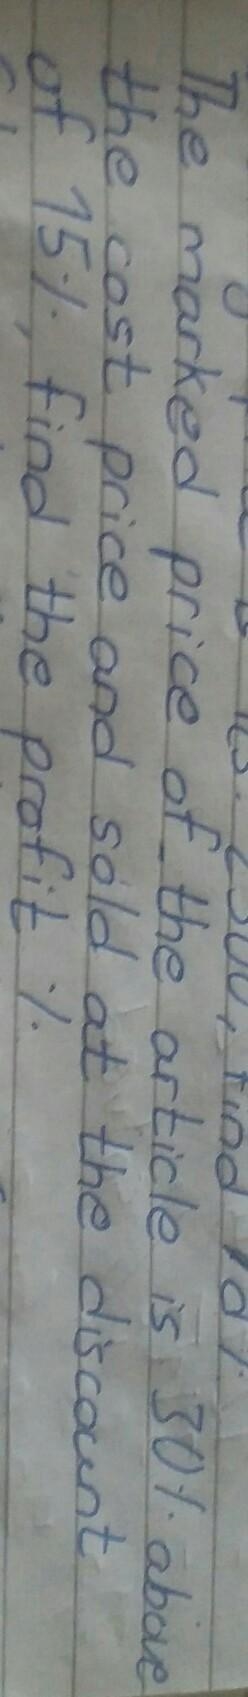 find d%.
The marked price of the article is 30%. above
the cost price and sold at the discount
of 15%, find the profit %.